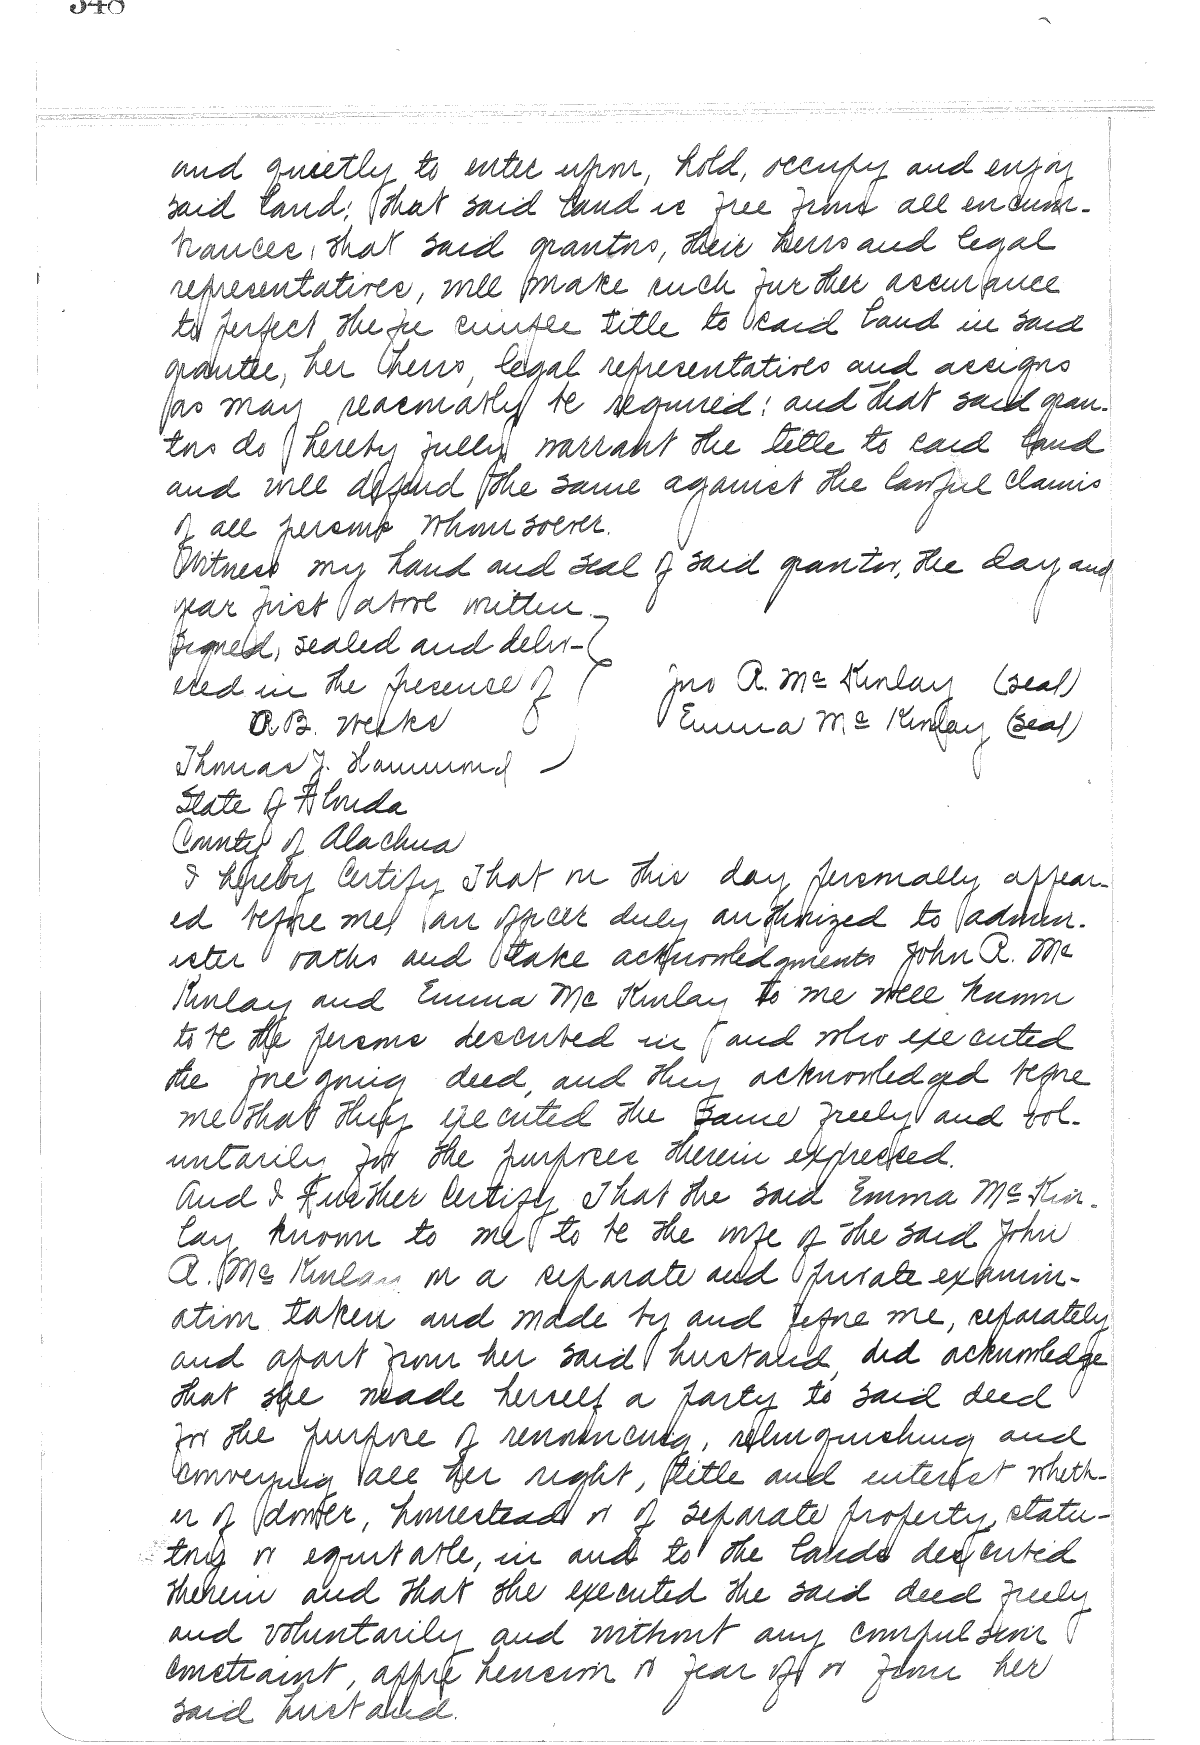 348
and quietly to enter upon, hold, occupy and enjoy
said land; that said land is free from all encum-
brances, that said grantors, their heirs and legal
representatives, will make such further assurance
to perfect the fee simple title to said land in said
grantee, her heirs, legal representatives and assigns
as may reasonably be required; and that said gran-
tors do hereby fully warrant the title to said land
and will defend the same against the lawful claims
of all persons whomsoever.
Witness my hand and seal of said grantor, the day and
year first above written
Signed, sealed and deliv-
ered in the presence of
Jno A. Mc Kinlay (seal)
A B. Weeks
Emma Mc Kinlay (seal)
Thomas J. Hammond
State of Florida
County of Alachua
I hereby Certify That on this day personally appear-
ed before me, an officer duly authorized to admin-
ister oaths and take acknowledgments John A. Mc
Kinlay and Emma Mc Kinlay to me well known
to be the persons described in and who executed
the foregoing deed, and they acknowledged before
me that they executed the same freely and vol-
untarily for the purposes therein expressed.
And I Further Certify That the said Emma Mc Kin-
lay known to me to be the wife of the said John
A. Mc Kinlay on a separate and private examin-
ation taken and made by and before me, separately
and apart from her said husband, did acknowledge
that she made herself a party to said deed
for the purpose of renouncing, relinquishing and
conveying all her right, title and interest wheth-
er of dower, homestead or of separate property, statu-
tory or equitable, in and to the lands described
therein and that she executed the said deed freely
and voluntarily and without any compulsion
constraint, apprehension or fear of or from her
said husband.